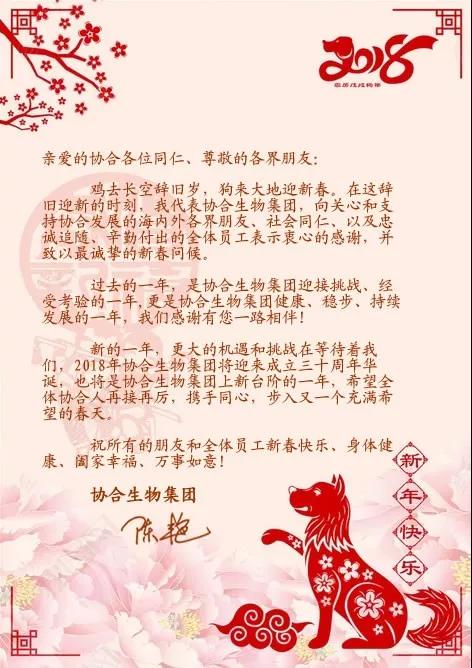 2018
农历戊戌狗年
亲爱的协合各位同仁、尊敬的各界朋友：
鸡去长空辞旧岁，狗来大地迎新春。在这辞
旧迎新的时刻，我代表协合生物集团，向关心和支
持协合发展的海内外各界朋友、社会同仁、以及忠
诚追随、辛勤付出的全体员工表示衷心的感谢，并
致以最诚挚的新春问候。
过去的一年，是协合生物集团迎接挑战、经
受考验的一年，更是协合生物集团健康、稳步、持续
发展的一年，我们感谢有您一路相伴！
新的一年，更大的机遇和挑战在等待着我
们，2018年协合生物集团将迎来成立三十周年华
诞，也将是协合生物集团上新台阶的一年，希望全
体协合人再接再厉，携手同心，步入又一个充满希
望的春天。
祝所有的朋友和全体员工新春快乐、身体健
康、阖家幸福、万事如意！
协合生物集团
陈艳
新年快乐